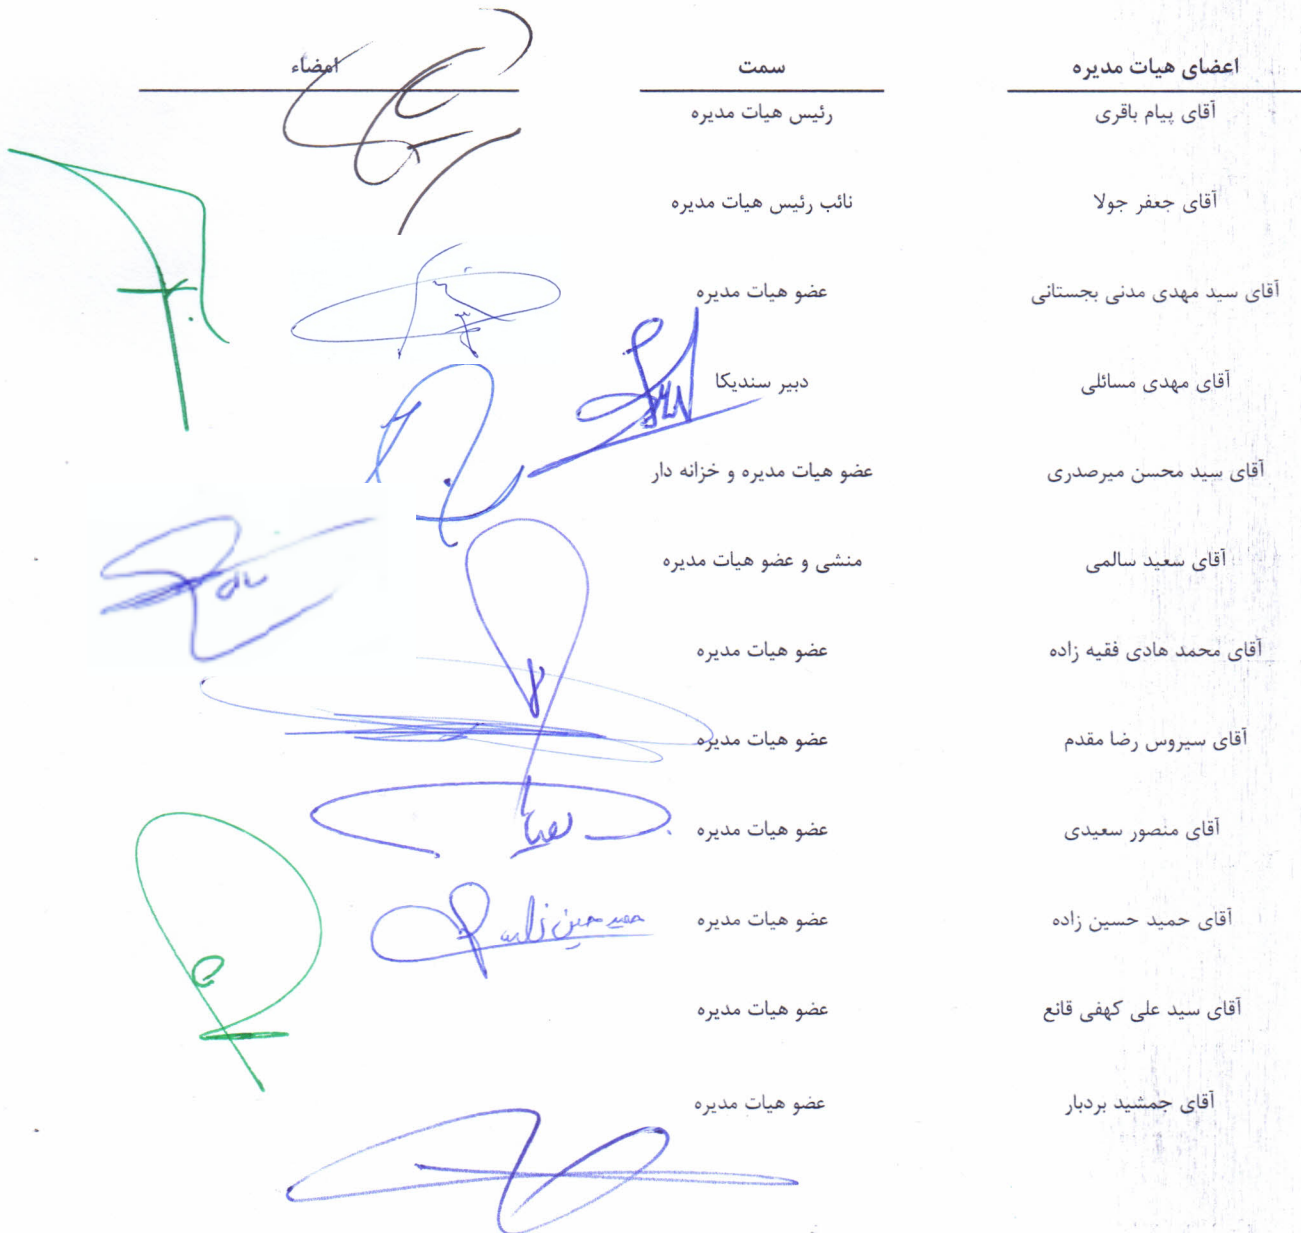 اعضای هیات مدیره سمت امضاء
آقای پیام باقری رئیس هیات مدیره
آقای جعفر جولا نائب رئیس هیات مدیره
آقای سید مهدی مدنی بجستانی عضو هیات مدیره
آقای مهدی مسائلی دبیر سندیکا
آقای سید محسن میرصدری عضو هیات مدیره و خزانه دار
آقای سعید سالمی منشی و عضو هیات مدیره
آقای محمد هادی فقیه زاده عضو هیات مدیره
آقای سیروس رضا مقدم عضو هیات مدیره
آقای منصور سعیدی عضو هیات مدیره
آقای حمید حسین زاده عضو هیات مدیره حمید حسین زاده
آقای سید علی کهفی قانع عضو هیات مدیره
آقای جمشید بردبار عضو هیات مدیره